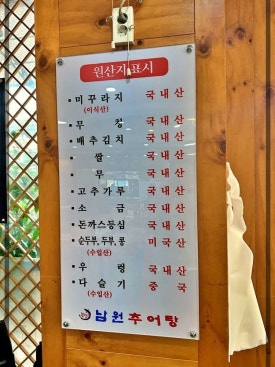 원산지표시
▪ 미꾸라지 국내산
(이식산)
▪ 무청 국내산
▪ 배추김치 국내산
▪ 쌀 국내산
▪ 무 국내산
▪ 고추가루 국내산
▪ 소금 국내산
▪ 돈까스등심 국내산
▪ 순두부,두부,콩 미국산
(수입산)
▪ 우렁 국내산
▪ 다슬기 중국
(수입산)
남원추어탕